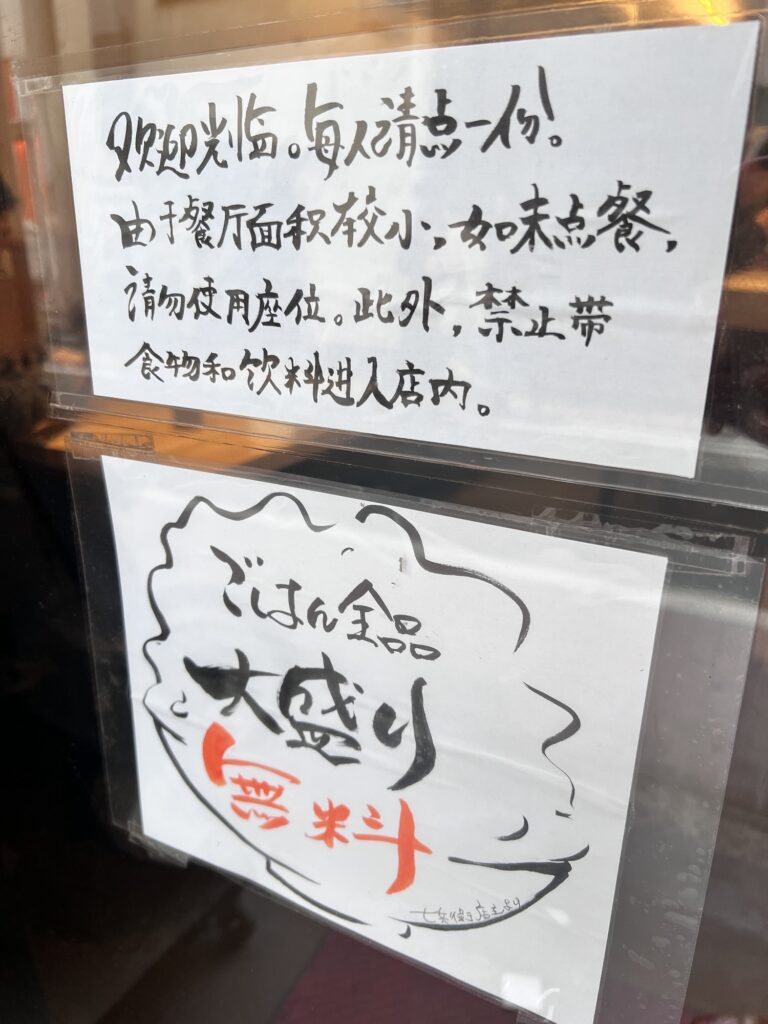 欢迎光临。每人请点一份。
由于餐厅面积较小，如未点餐，
请勿使用座位。此外，禁止带
食物和饮料进入店内。
ごはん全品
大盛り
無料
店主より